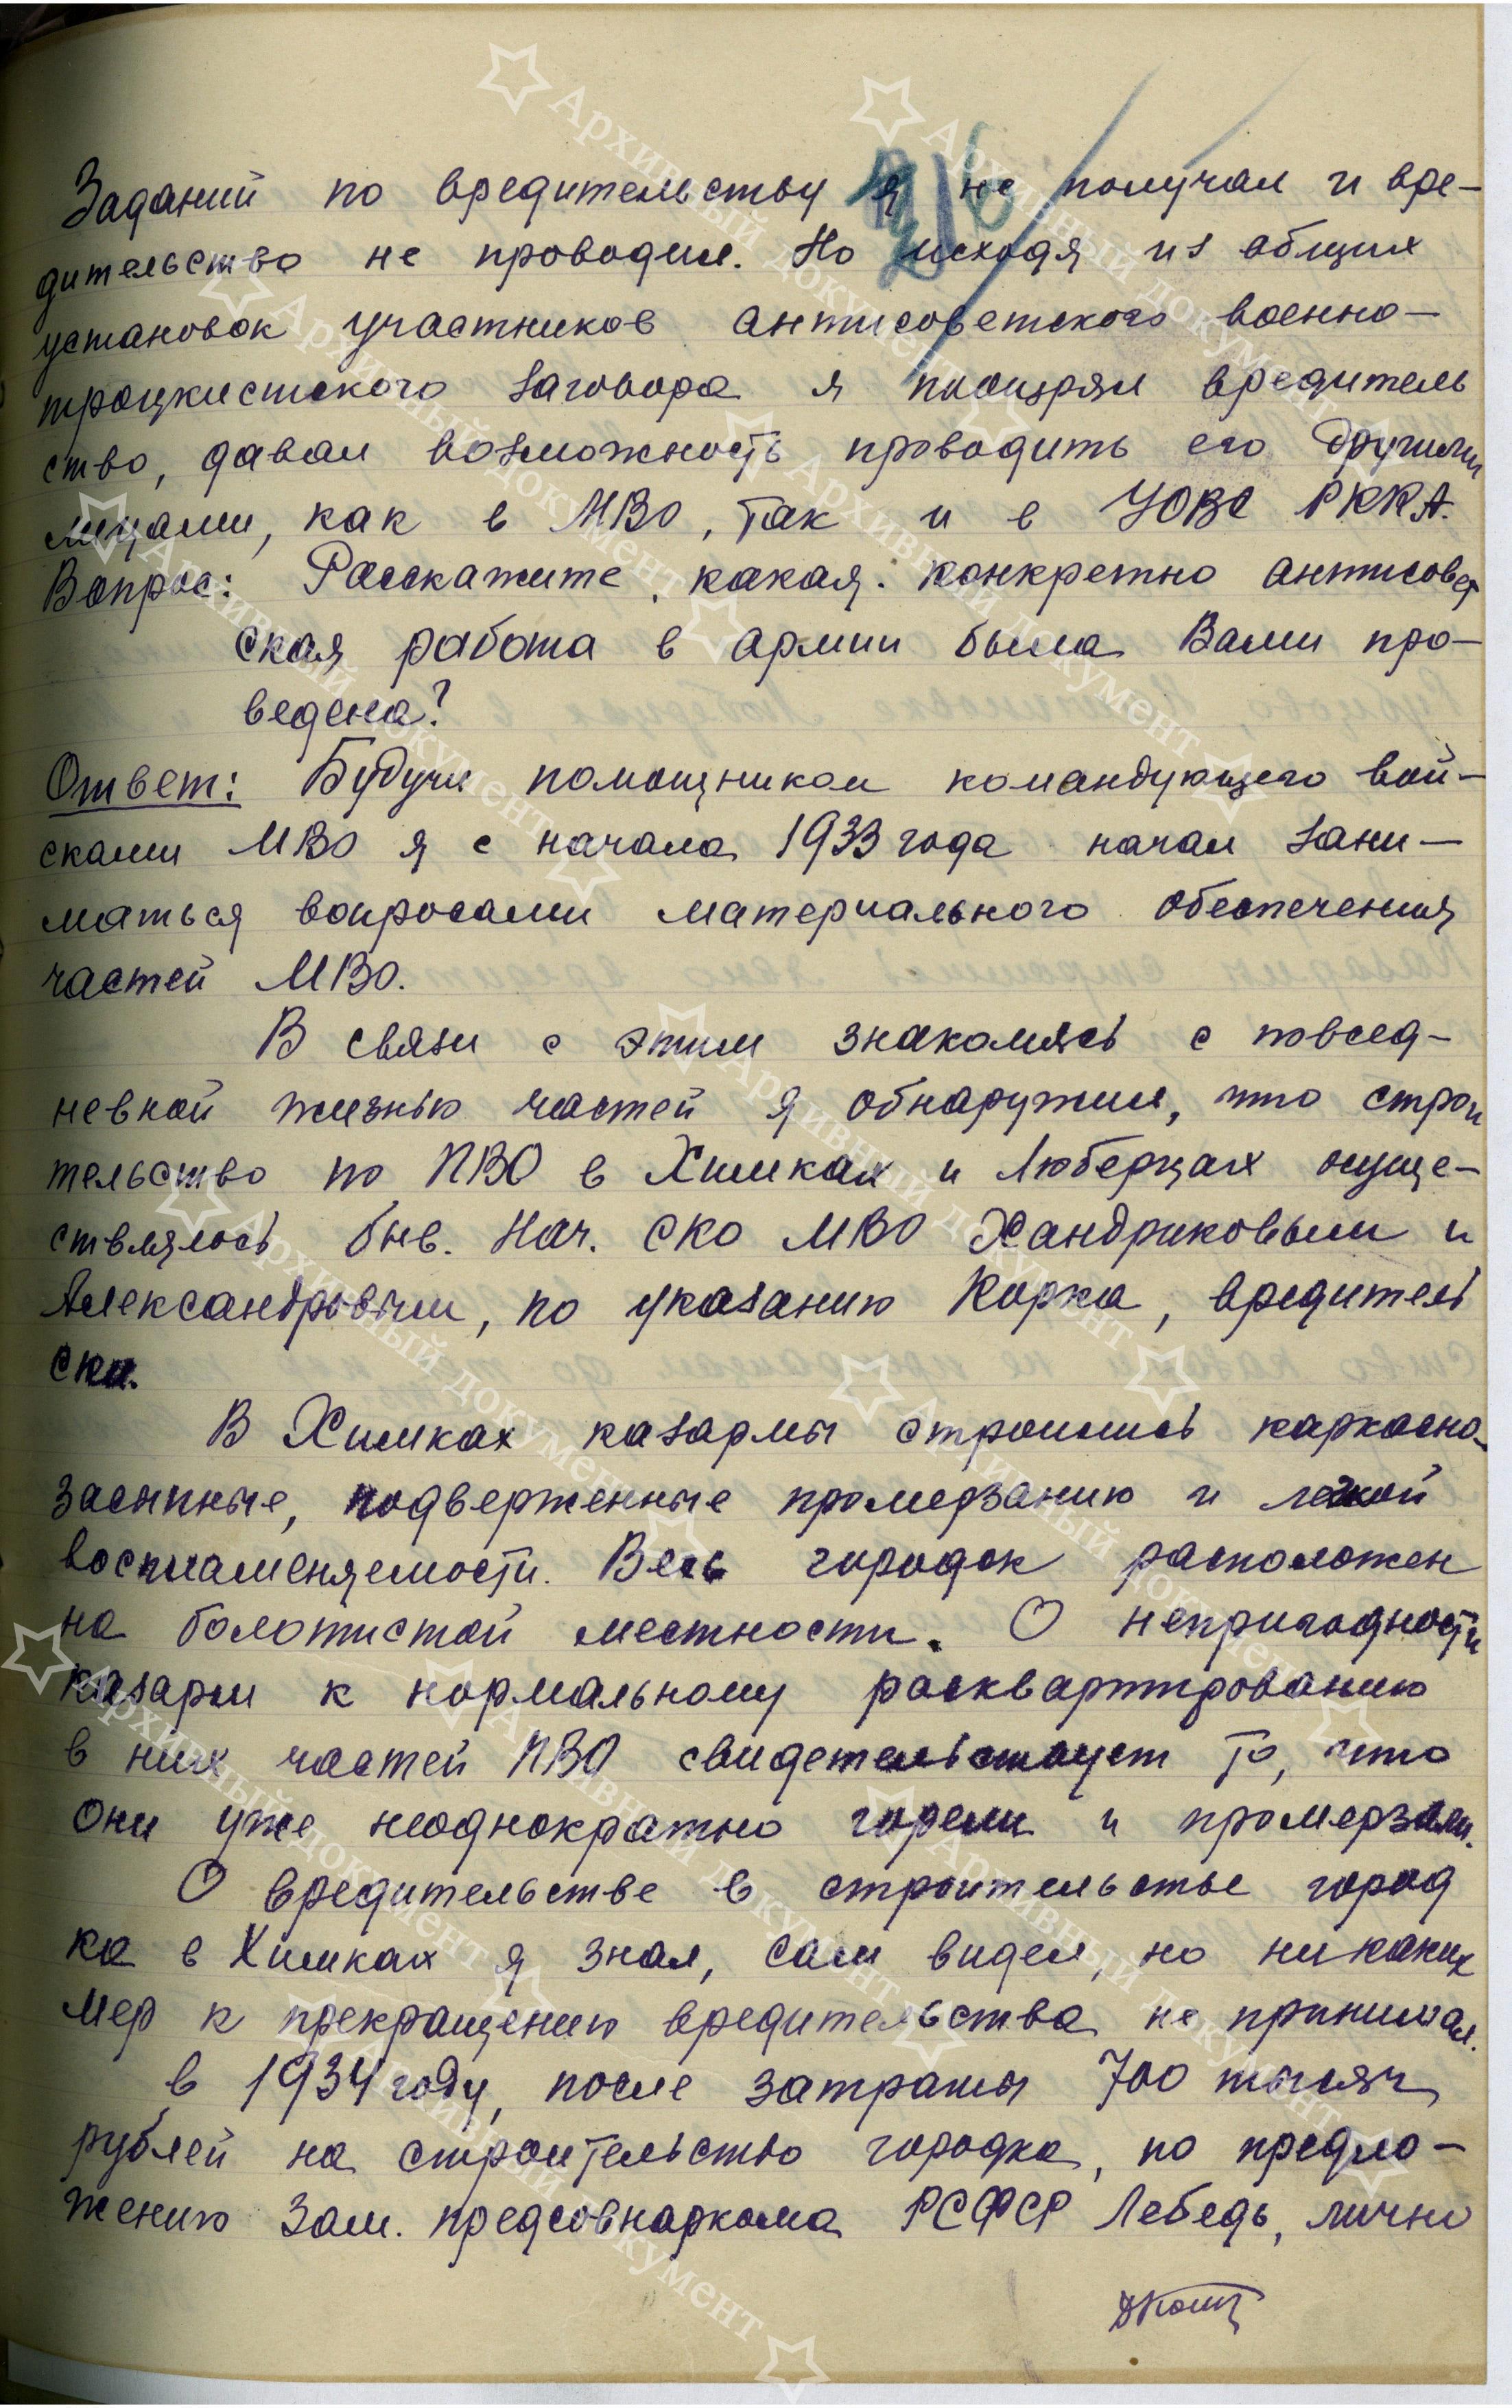 Заданий по вредительству я не получал и вре-
дительство не проводил. Но исходя из общих
установок участников антисоветского военно-
троцкистского заговора я поощрял вредитель
ство, давал возможность проводить его другими
лицами, как в МВО, так и в УОВС РККА.
Вопрос: Расскажите, какая конкретно антисовет
ская работа в армии была Вами про-
ведена?
Ответ: Будучи помощником командующего вой-
сками МВО я с начала 1933 года начал зани-
маться вопросами материального обеспечения
частей МВО.
В связи с этим знакомясь с повсед-
невной жизнью частей я обнаружил, что строи
тельство по ПВО в Химках и Люберцах осуще-
ствлялось быв. Нач. СКО МВО Хандриковым и
Александровым, по указанию Корка, вредитель
ски.
В Химках казармы строились каркасно-
засыпные, подверженные промерзанию и легкой
воспламеняемости. Весь городок расположен
на болотистой местности. О непригодности
казарм к нормальному расквартированию
в них частей ПВО свидетельствует то, что
они уже неоднократно горели и промерзали.
О вредительстве в строительстве город
ка в Химках я знал, сам видел, но никаких
мер к прекращению вредительства не принимал.
в 1934 году, после затраты 700 тысяч
рублей на строительство городка, по предло-
жению Зам. предсовнаркома РСФСР Лебедь, лично
Архивный документ